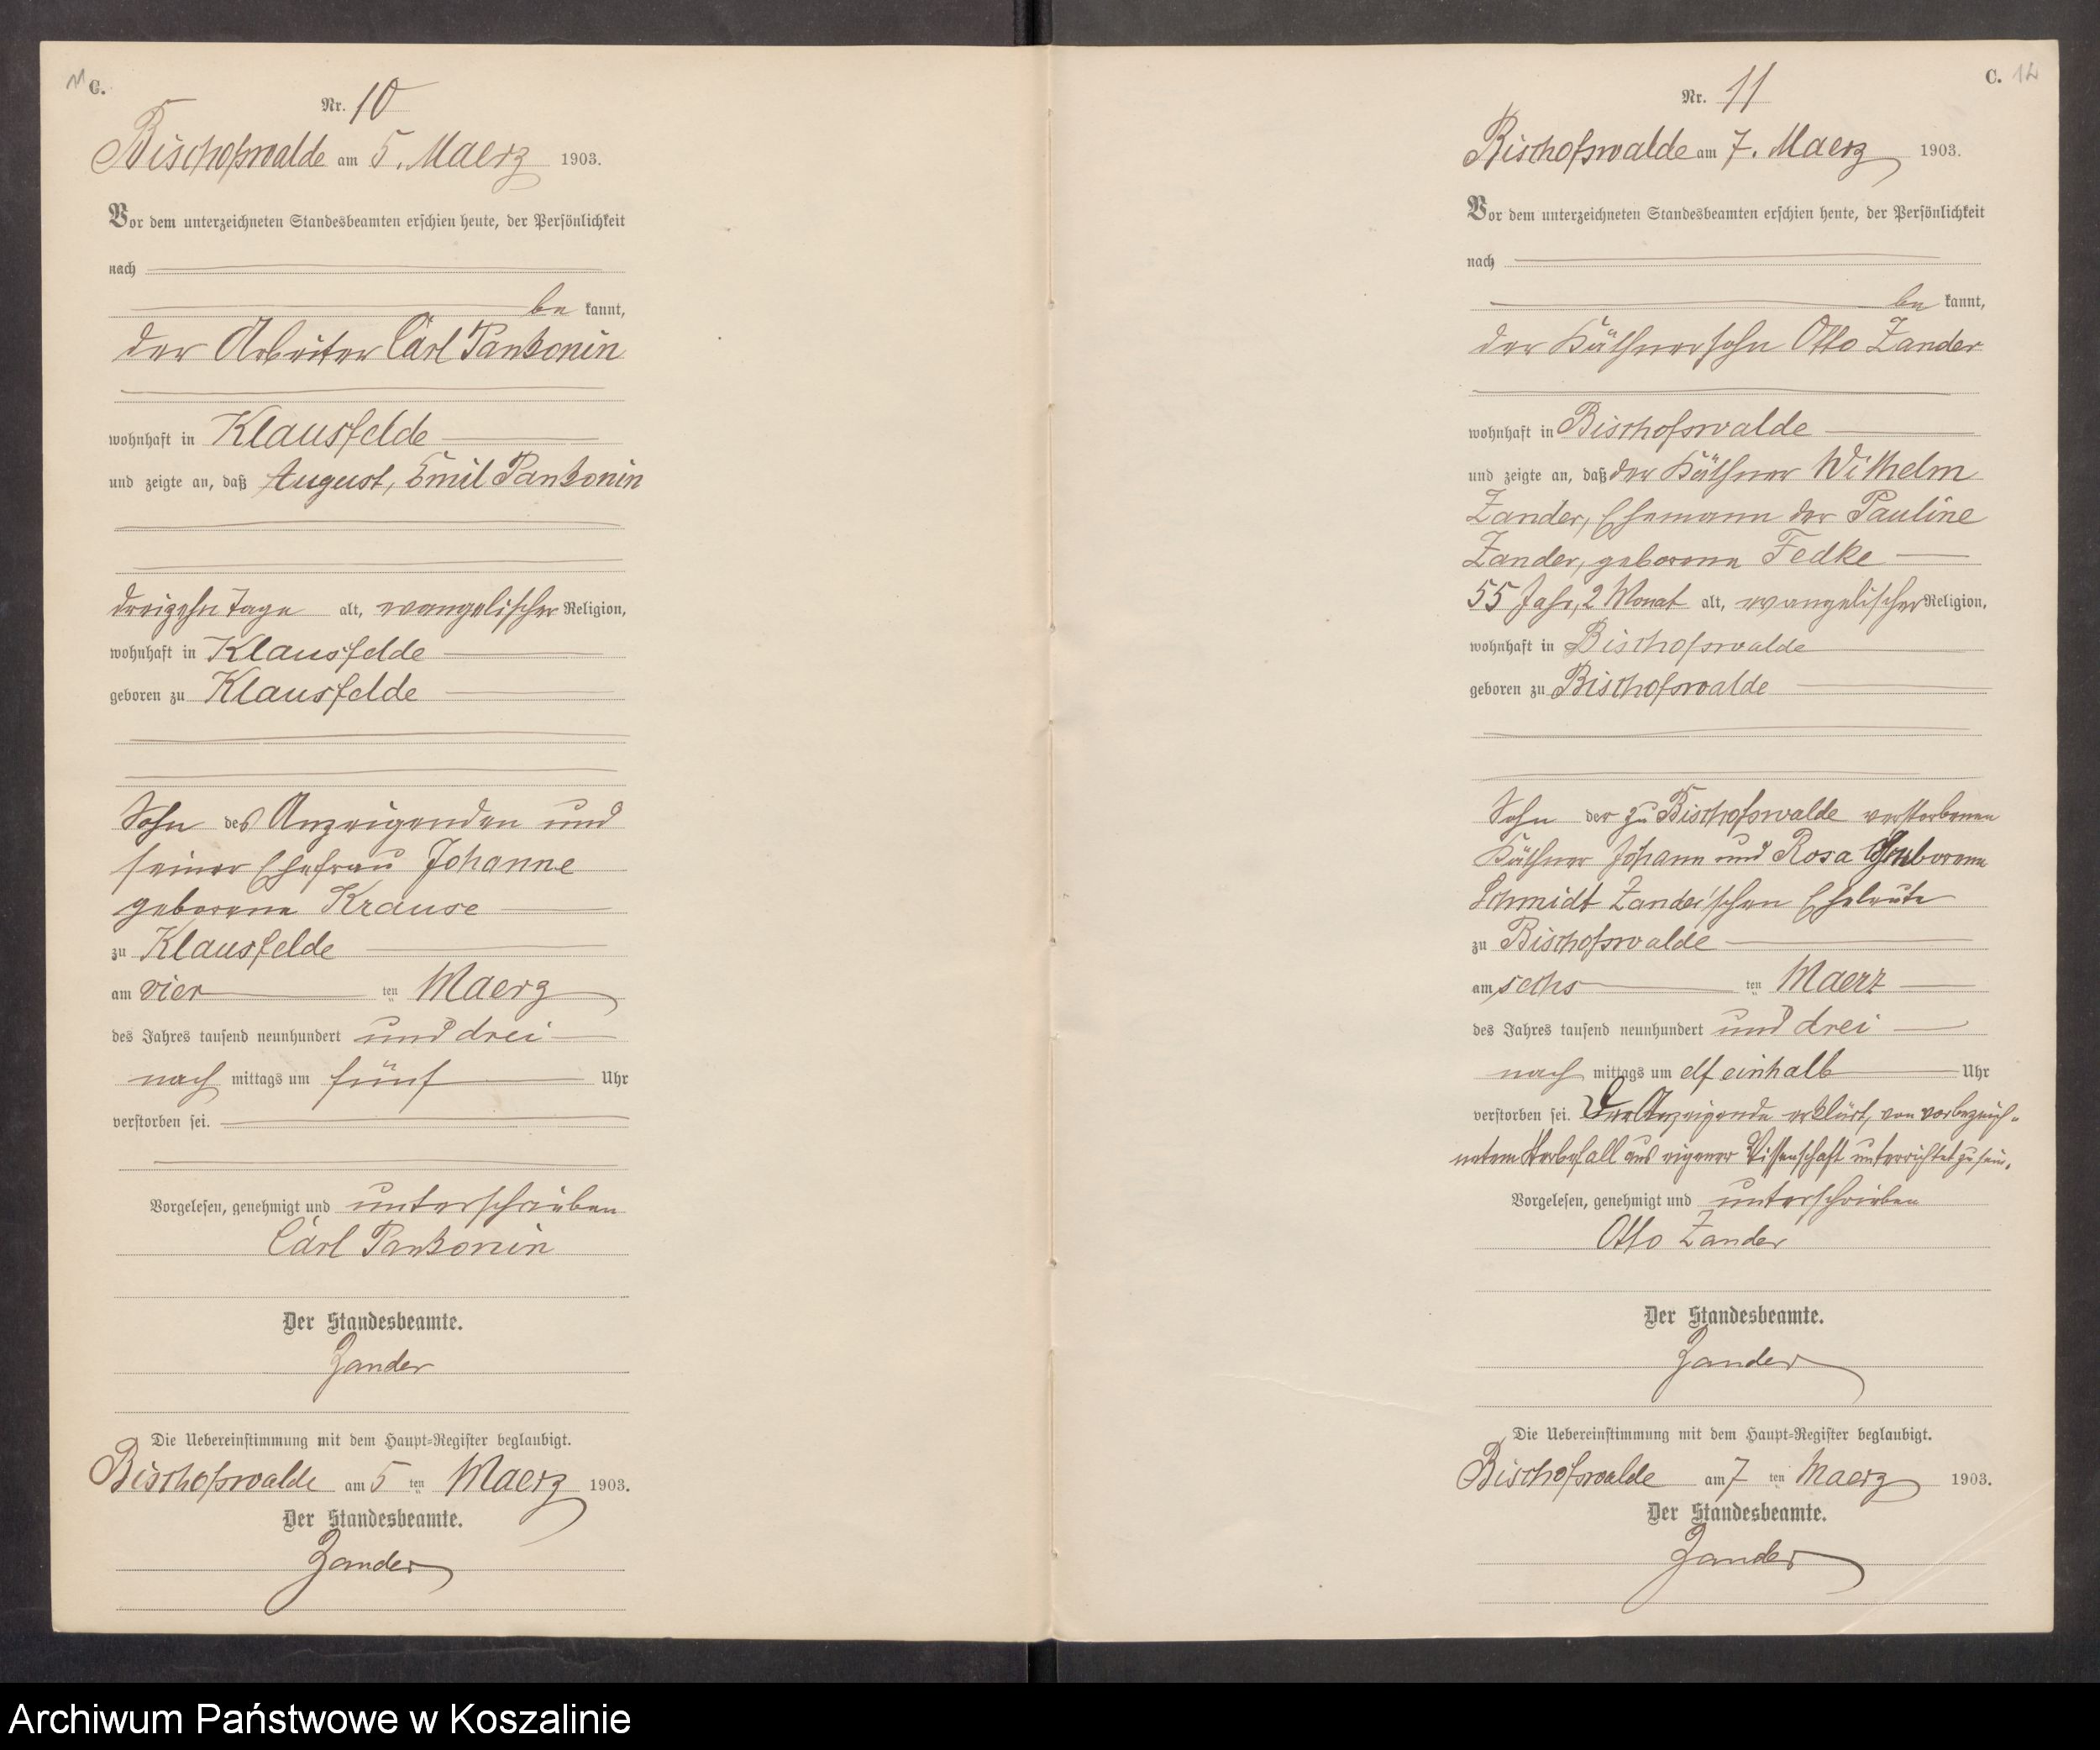 11
C.
Nr. 10
Bischofswalde am 5. Maerz 1903.
Vor dem unterzeichneten Standesbeamten erschien heute, der Persönlichkeit
nach
be kannt,
der Arbeiter Carl Pankonin
wohnhaft in Klausfelde
und zeigte an, daß August, Emil Pankonin
dreizehn Tage alt, evangelischer Religion,
wohnhaft in Klausfelde
geboren zu Klausfelde
Sohn des Anzeigenden und
seiner Ehefrau Johanne
geborene Krause
zu Klausfelde
am vier ten Maerz
des Jahres tausend neunhundert und drei
nach mittags um fünf Uhr
verstorben sei.
Vorgelesen, genehmigt und unterschrieben
Carl Pankonin
Der Standesbeamte.
Zander
Die Uebereinstimmung mit dem Haupt-Register beglaubigt.
Bischofswalde am 5 ten Maerz 1903.
Der Standesbeamte.
Zander
C. 12
Nr. 11
Bischofswalde am 7. Maerz 1903.
Vor dem unterzeichneten Standesbeamten erschien heute, der Persönlichkeit
nach
be kannt,
der Käthnersohn Otto Zander
wohnhaft in Bischofswalde
und zeigte an, daß der Käthner Wilhelm
Zander, Ehemann der Pauline
Zander, geborene Fedke
55 Jahr, 2 Monat alt, evangelischer Religion,
wohnhaft in Bischofswalde
geboren zu Bischofswalde
Sohn der zu Bischofswalde verstorbenen
Käthner Johann und Rosa geborene
Schmidt Zander'schen Eheleute
zu Bischofswalde
am sechs ten Maerz
des Jahres tausend neunhundert und drei
nach mittags um elf einhalb Uhr
verstorben sei. Der Anzeigende erklärt, von vorbezeich-
netem Sterbefall aus eigener Wissenschaft unterrichtet zu sein.
Vorgelesen, genehmigt und unterschrieben
Otto Zander
Der Standesbeamte.
Zander
Die Uebereinstimmung mit dem Haupt-Register beglaubigt.
Bischofswalde am 7 ten Maerz 1903.
Der Standesbeamte.
Zander
Archiwum Państwowe w Koszalinie